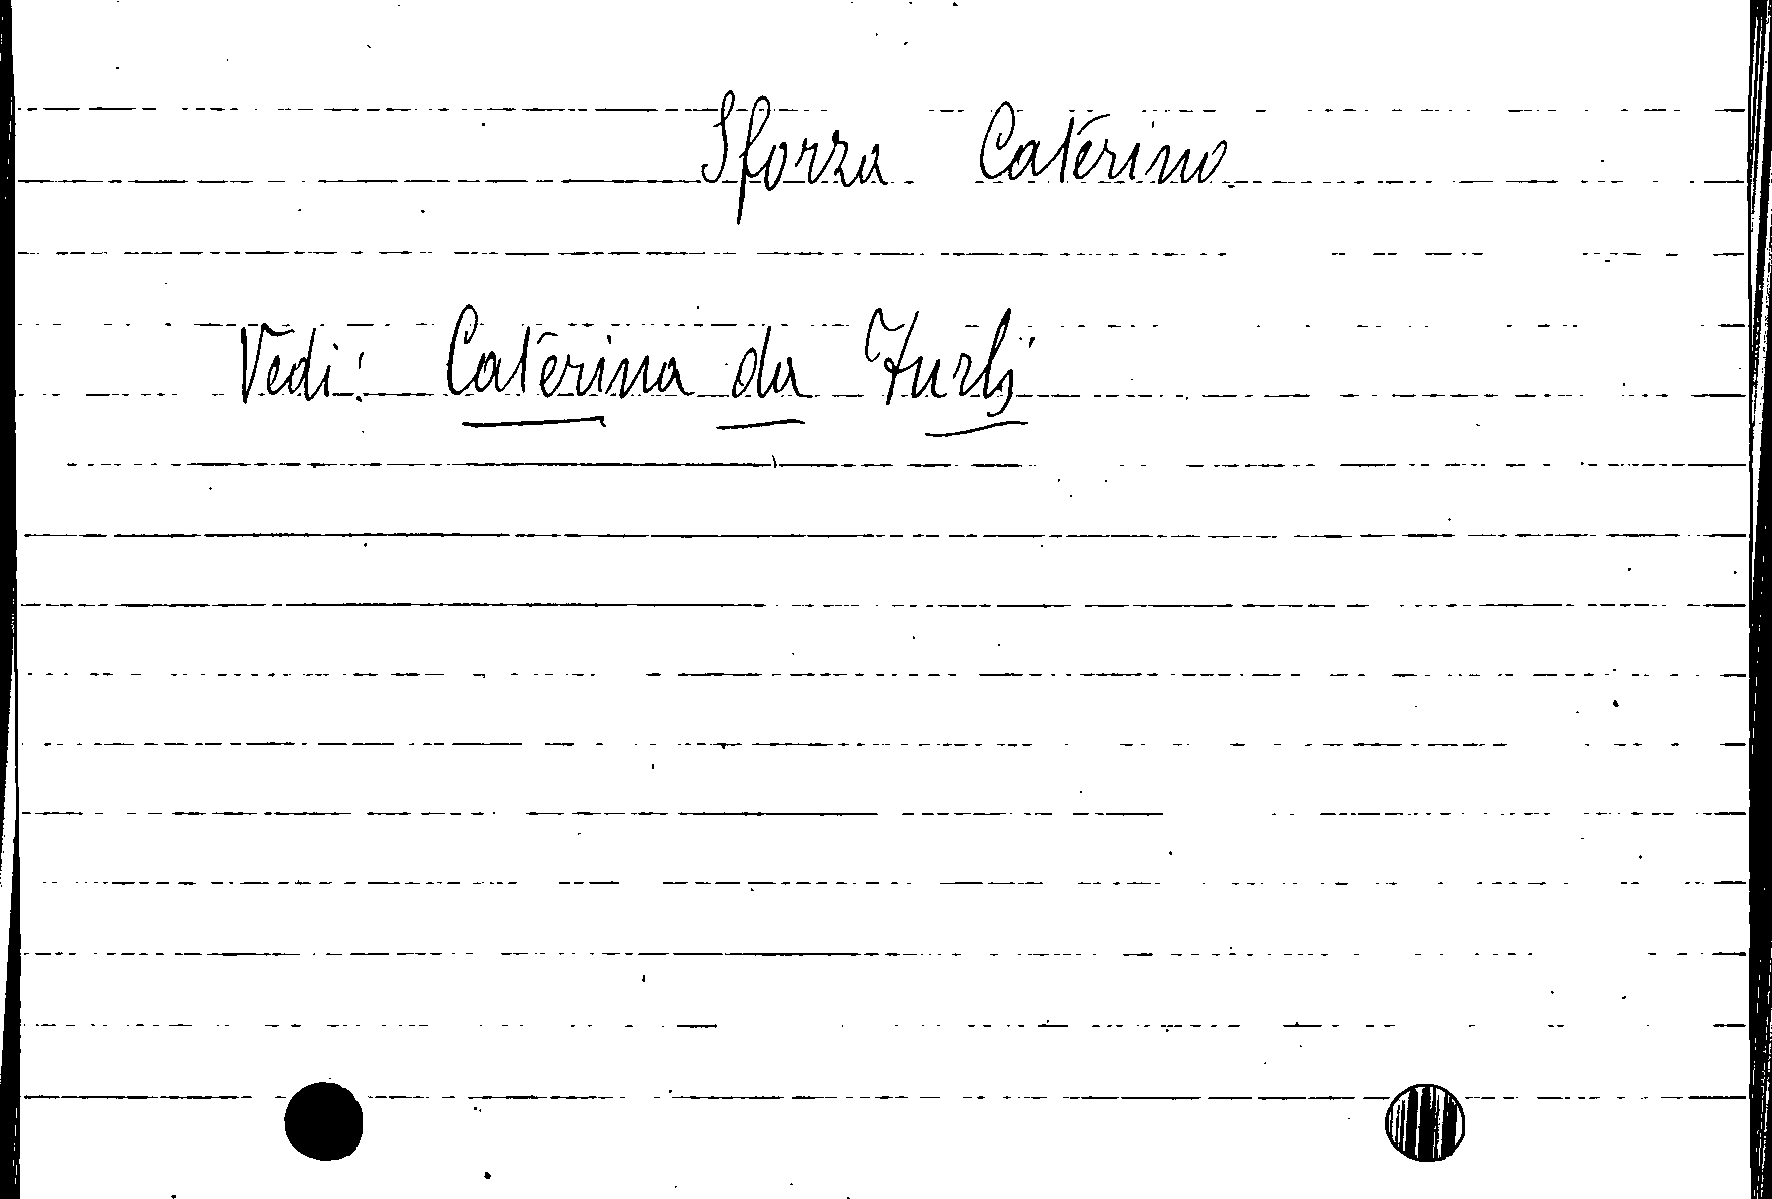 Sforza Caterina
Vedi: Caterina da Furlj